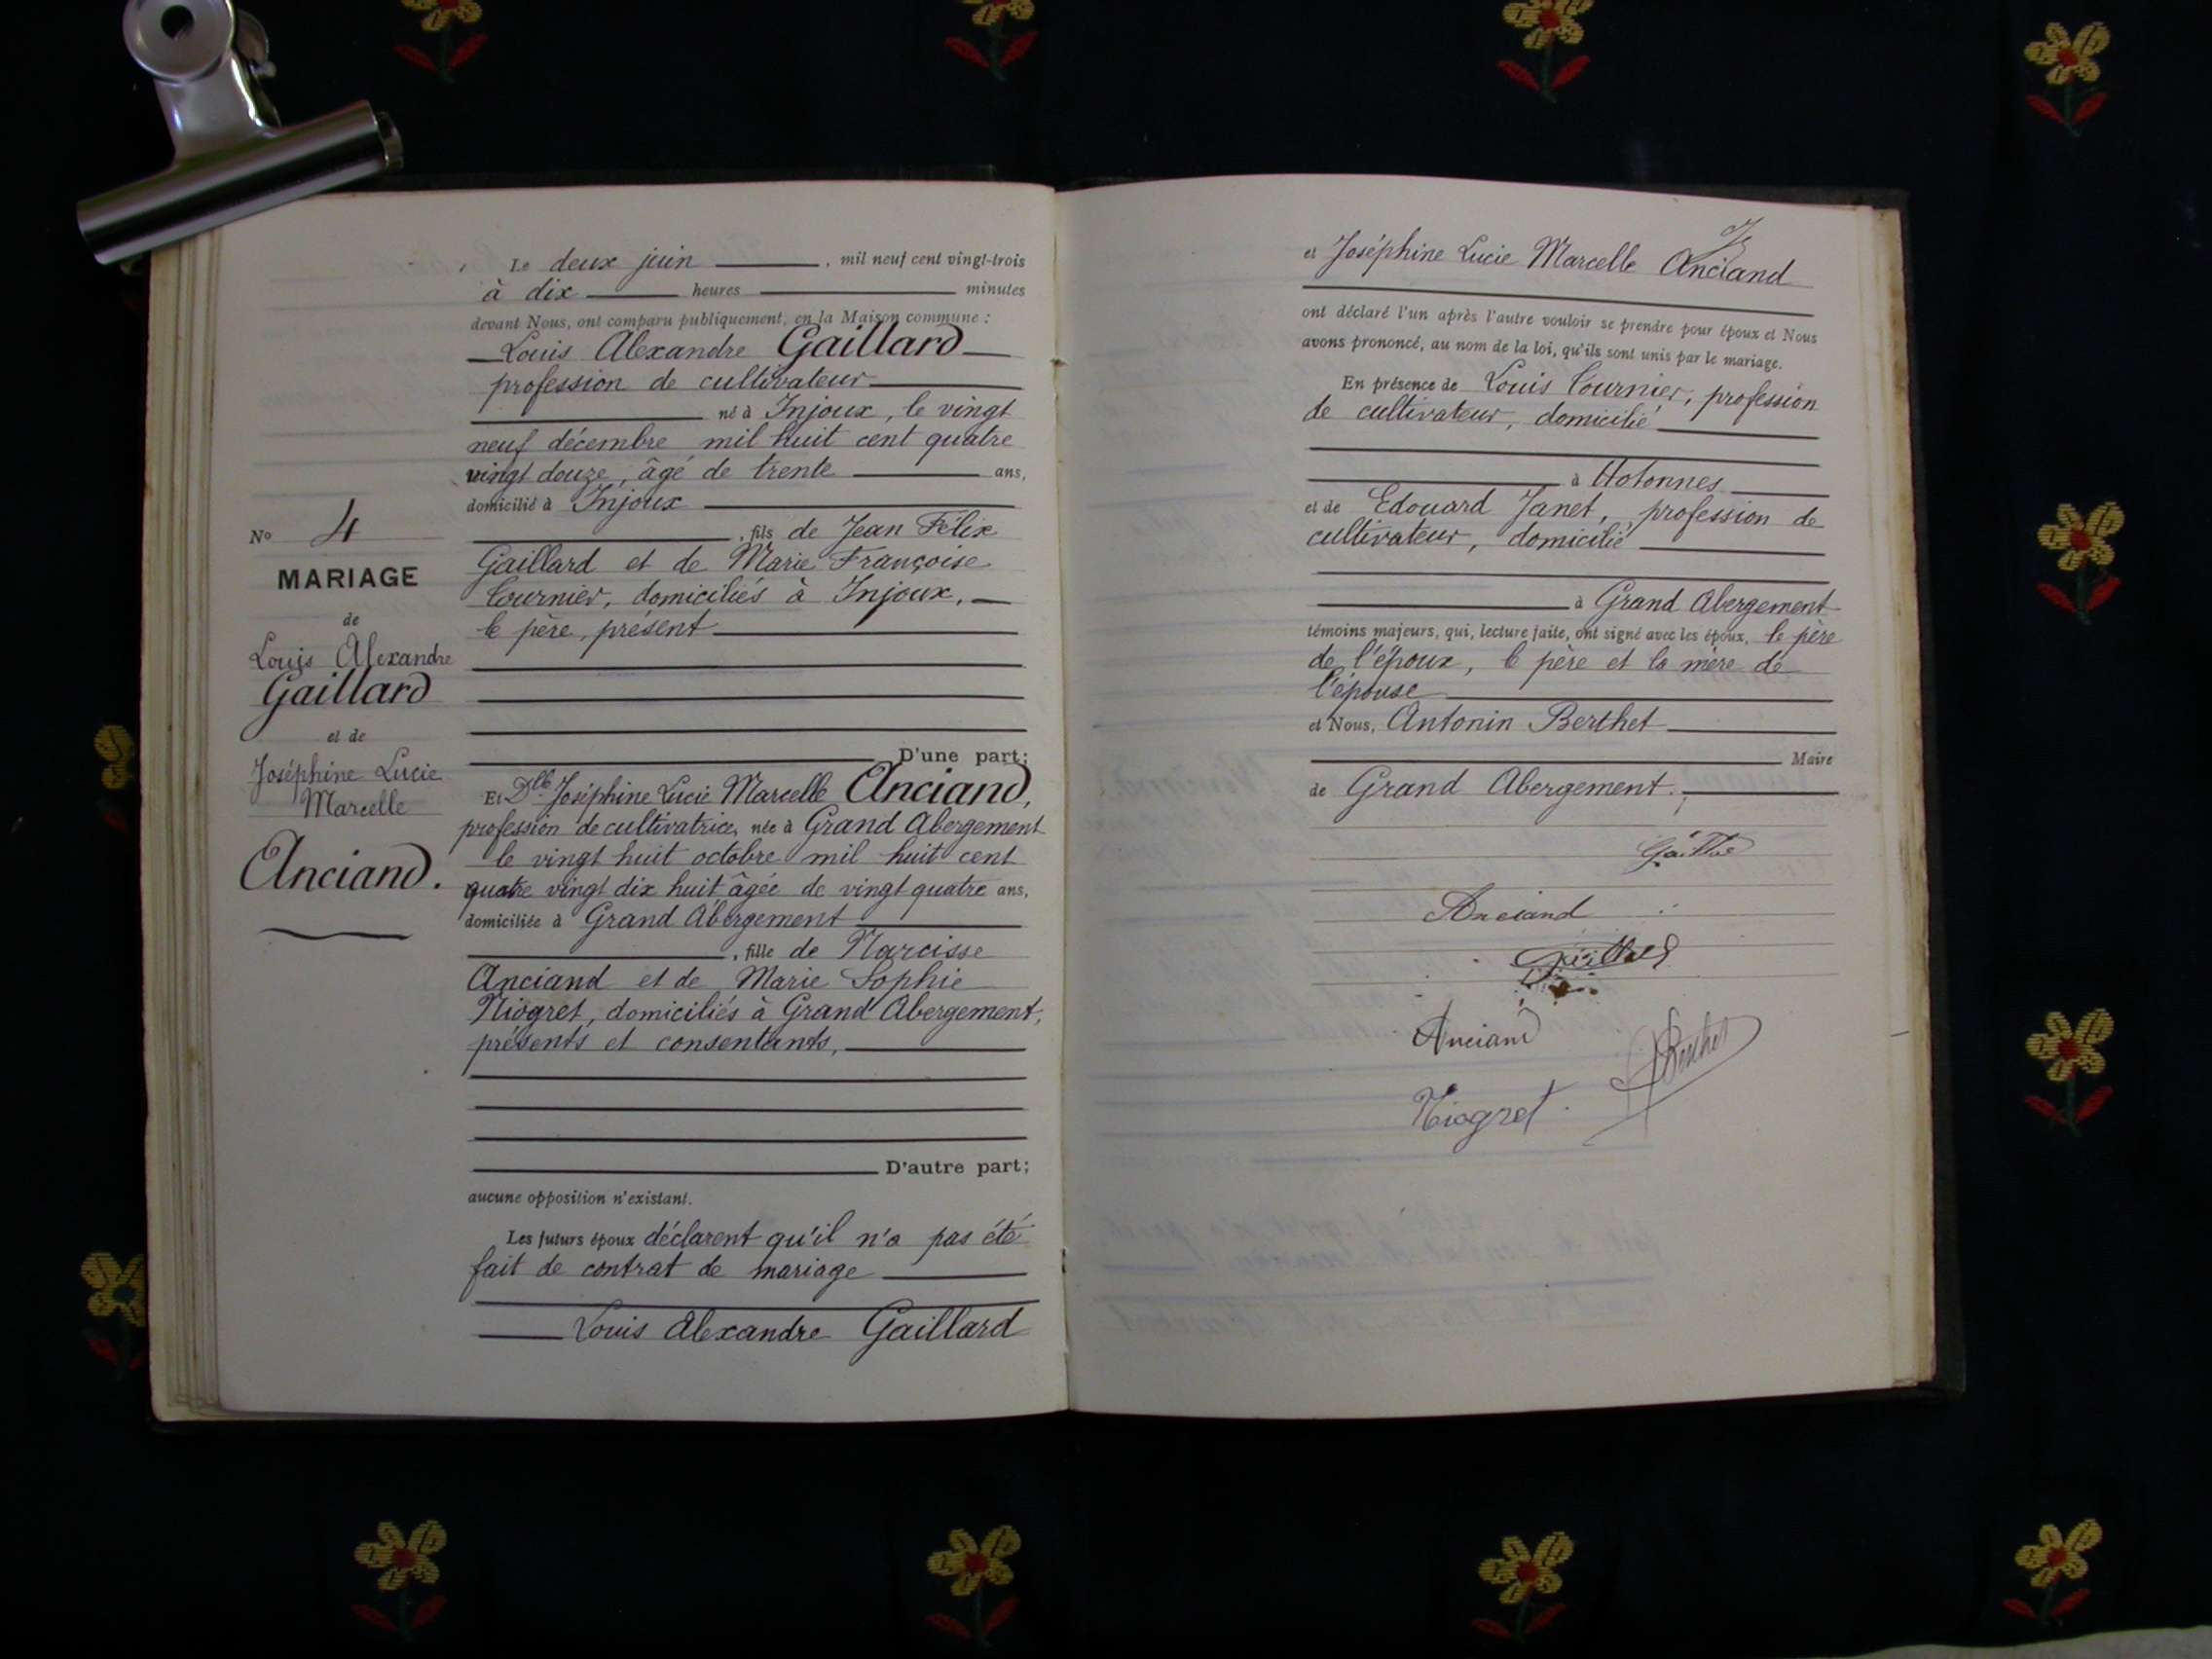 Le deux juin , mil neuf cent vingt-trois
à dix heures minutes
devant Nous, ont comparu publiquement, en la Maison commune :
Louis Alexandre Gaillard
profession de cultivateur
né à Injoux, le vingt
neuf décembre mil huit cent quatre
vingt douze, âgé de trente ans,
domicilié à Injoux
, fils de Jean Félix
Gaillard et de Marie Françoise
Tournier, domiciliés à Injoux,
le père, présent
D'une part;
Et Dlle Joséphine Lucie Marcelle Anciand,
profession de cultivatrice, née à Grand Abergement
le vingt huit octobre mil huit cent
quatre vingt dix huit âgée de vingt quatre ans,
domiciliée à Grand Abergement
, fille de Narcisse
Anciand et de Marie Sophie
Niogret, domiciliés à Grand Abergement,
présents et consentants,
D'autre part;
aucune opposition n'existant.
Les futurs époux déclarent qu'il n'a pas été
fait de contrat de mariage
Louis Alexandre Gaillard
No 4
MARIAGE
de
Louis Alexandre
Gaillard
et de
Joséphine Lucie
Marcelle
Anciand.
et Joséphine Lucie Marcelle Anciand
ont déclaré l'un après l'autre vouloir se prendre pour époux et Nous
avons prononcé, au nom de la loi, qu'ils sont unis par le mariage.
En présence de Louis Tournier, profession
de cultivateur, domicilié
à Hotonnes
et de Edouard Janet, profession de
cultivateur, domicilié
à Grand Abergement
témoins majeurs, qui, lecture faite, ont signé avec les époux, le père
de l'époux, le père et la mère de
l'épouse
et Nous, Antonin Berthet
Maire
de Grand Abergement.
Gaillard
Anciand
Gaillard
Anciand
Berthet
Niogret